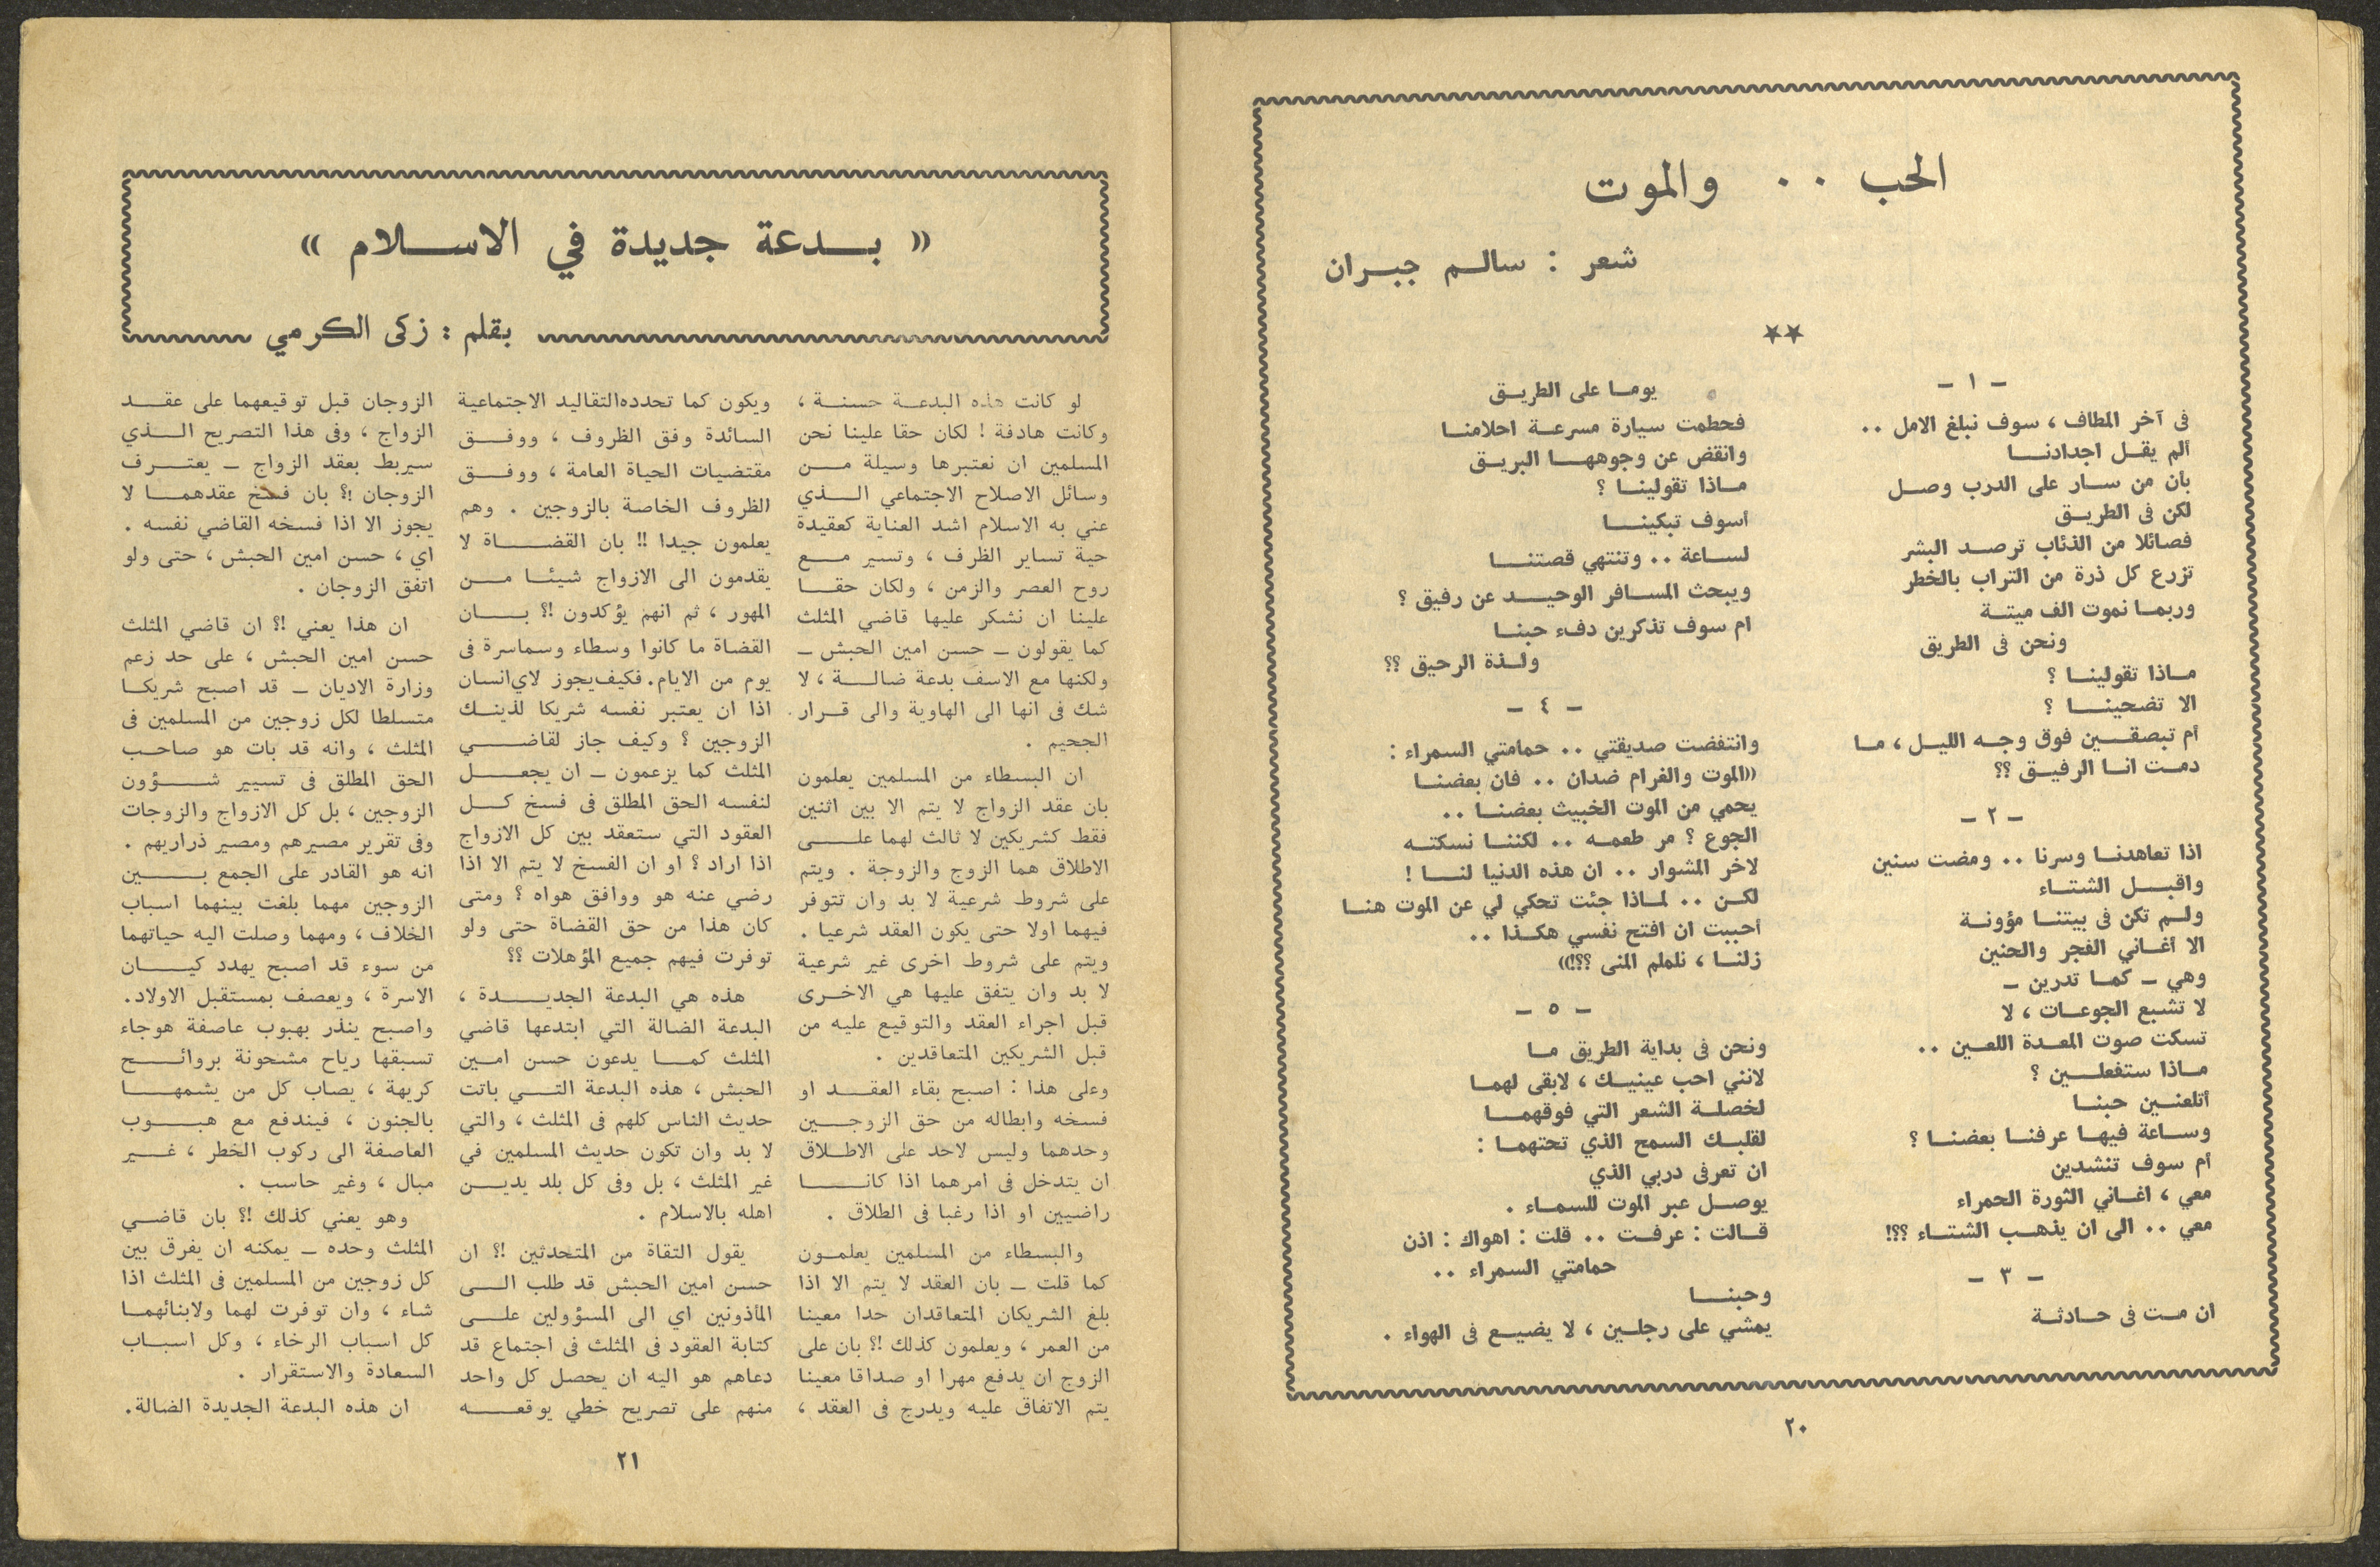 الحب ٠٠ والموت
شعر : سالم جبران
**
- ١ -
فى آخر المطاف ، سوف نبلغ الامل ٠٠
ألم يقل اجدادنا
بان من سار على الدرب وصل
لكن فى الطريق
فصائلا من الذئاب ترصد البشر
تزرع كل ذرة من التراب بالخطر
وربما نموت الف ميتة
ونحن فى الطريق
ماذا تقولينا ؟
الا تضحينا ؟
أم تبصقين فوق وجه الليل ، ما
دمت انا الرفيق ؟؟
- ٢ -
اذا تعاهدنا وسرنا ٠٠ ومضت سنين
واقبل الشتاء
ولم تكن فى بيتنا مؤونة
الا أغاني الفجر والحنين
وهي - كما تدرين -
لا تشبع الجوعات ، لا
تسكت صوت المعدة اللعين ٠٠
ماذا ستفعلين ؟
أتلعنين حبنا
وساعة فيها عرفنا بعضنا ؟
أم سوف تنشدين
معي ، اغاني الثورة الحمراء
معي ٠٠ الى ان يذهب الشتاء ؟؟!
- ٣ -
ان مت فى حادثة
يوما على الطريق
فحطمت سيارة مسرعة احلامنا
وانقض عن وجوهها البريق
ماذا تقولينا ؟
أسوف تبكينا
لساعة ٠٠ وتنتهي قصتنا
ويبحث المسافر الوحيد عن رفيق ؟
ام سوف تذكرين دفء حبنا
ولذة الرحيق ؟؟
- ٤ -
وانتفضت صديقتي ٠٠ حمامتي السمراء :
((الموت والغرام ضدان ٠٠ فان بعضنا
يحمي من الموت الخبيث بعضنا ٠٠
الجوع ؟ مر طعمه ٠٠ لكننا نسكته
لاخر المشوار ٠٠ ان هذه الدنيا لنا !
لكن ٠٠ لماذا جئت تحكي لي عن الموت هنا
أحببت ان افتح نفسي هكذا ٠٠
زلنا ، نلملم المنى ؟؟!))
- ٥ -
ونحن فى بداية الطريق ما
لانني احب عينيك ، لابقى لهما
لخصلة الشعر التي فوقهما
لقلبك السمح الذي تحتهما :
ان تعرفى دربي الذي
يوصل عبر الموت للسماء .
قالت : عرفت ٠٠ قلت : اهواك : اذن
حمامتي السمراء ٠٠
وحبنا
يمشي على رجلين ، لا يضيع فى الهواء .
٢٠
(( بدعة جديدة في الاسلام ))
بقلم : زكى الكرمي
لو كانت هذه البدعة حسنة ،
وكانت هادفة ! لكان حقا علينا نحن
المسلمين ان نعتبرها وسيلة من
وسائل الاصلاح الاجتماعي الذي
عني به الاسلام اشد العناية كعقيدة
حية تساير الظرف ، وتسير مع
روح العصر والزمن ، ولكان حقا
علينا ان نشكر عليها قاضي المثلث
كما يقولون - حسن امين الحبش -
ولكنها مع الاسف بدعة ضالة ، لا
شك فى انها الى الهاوية والى قرار
الجحيم .
ان البسطاء من المسلمين يعلمون
بان عقد الزواج لا يتم الا بين اثنين
فقط كشريكين لا ثالث لهما على
الاطلاق هما الزوج والزوجة . ويتم
على شروط شرعية لا بد وان تتوفر
فيهما اولا حتى يكون العقد شرعيا .
ويتم على شروط اخرى غير شرعية
لا بد وان يتفق عليها هي الاخرى
قبل اجراء العقد والتوقيع عليه من
قبل الشريكين المتعاقدين .
وعلى هذا : اصبح بقاء العقد او
فسخه وابطاله من حق الزوجين
وحدهما وليس لاحد على الاطلاق
ان يتدخل فى امرهما اذا كانا
راضيين او اذا رغبا فى الطلاق .
والبسطاء من المسلمين يعلمون
كما قلت - بان العقد لا يتم الا اذا
بلغ الشريكان المتعاقدان حدا معينا
من العمر ، ويعلمون كذلك !؟ بان على
الزوج ان يدفع مهرا او صداقا معينا
يتم الاتفاق عليه ويدرج فى العقد ،
ويكون كما تحدده التقاليد الاجتماعية
السائدة وفق الظروف ، ووفق
مقتضيات الحياة العامة ، ووفق
الظروف الخاصة بالزوجين . وهم
يعلمون جيدا !! بان القضاة لا
يقدمون الى الازواج شيئا من
المهور ، ثم انهم يؤكدون !؟ بان
القضاة ما كانوا وسطاء وسماسرة فى
يوم من الايام. فكيف يجوز لاي انسان
اذا ان يعتبر نفسه شريكا لذينك
الزوجين ؟ وكيف جاز لقاضي
المثلث كما يزعمون - ان يجعل
لنفسه الحق المطلق فى فسخ كل
العقود التي ستعقد بين كل الازواج
اذا اراد ؟ او ان الفسخ لا يتم الا اذا
رضي عنه هو ووافق هواه ؟ ومتى
كان هذا من حق القضاة حتى ولو
توفرت فيهم جميع المؤهلات ؟؟
هذه هي البدعة الجديدة ،
البدعة الضالة التي ابتدعها قاضي
المثلث كما يدعون حسن امين
الحبش ، هذه البدعة التي باتت
حديث الناس كلهم فى المثلث ، والتي
لا بد وان تكون حديث المسلمين في
غير المثلث ، بل وفى كل بلد يدين
اهله بالاسلام .
يقول الثقاة من المتحدثين !؟ ان
حسن امين الحبش قد طلب الى
المأذونين اي الى المسؤولين على
كتابة العقود فى المثلث فى اجتماع قد
دعاهم هو اليه ان يحصل كل واحد
منهم على تصريح خطي يوقعه
الزوجان قبل توقيعهما على عقد
الزواج ، وفى هذا التصريح الذي
سيربط بعقد الزواج - يعترف
الزوجان !؟ بان فسخ عقدهما لا
يجوز الا اذا فسخه القاضي نفسه .
اي ، حسن امين الحبش ، حتى ولو
اتفق الزوجان .
ان هذا يعني !؟ ان قاضي المثلث
حسن امين الحبش ، على حد زعم
وزارة الاديان - قد اصبح شريكا
متسلطا لكل زوجين من المسلمين فى
المثلث ، وانه قد بات هو صاحب
الحق المطلق فى تسيير شؤون
الزوجين ، بل كل الازواج والزوجات
وفى تقرير مصيرهم ومصير ذراريهم .
انه هو القادر على الجمع بين
الزوجين مهما بلغت بينهما اسباب
الخلاف ، ومهما وصلت اليه حياتهما
من سوء قد اصبح يهدد كيان
الاسرة ، ويعصف بمستقبل الاولاد.
واصبح ينذر بهبوب عاصفة هوجاء
تسبقها رياح مشحونة بروائح
كريهة ، يصاب كل من يشمها
بالجنون ، فيندفع مع هبوب
العاصفة الى ركوب الخطر ، غير
مبال ، وغير حاسب .
وهو يعني كذلك !؟ بان قاضي
المثلث وحده - يمكنه ان يفرق بين
كل زوجين من المسلمين فى المثلث اذا
شاء ، وان توفرت لهما ولابنائهما
كل اسباب الرخاء ، وكل اسباب
السعادة والاستقرار .
ان هذه البدعة الجديدة الضالة.
٢١